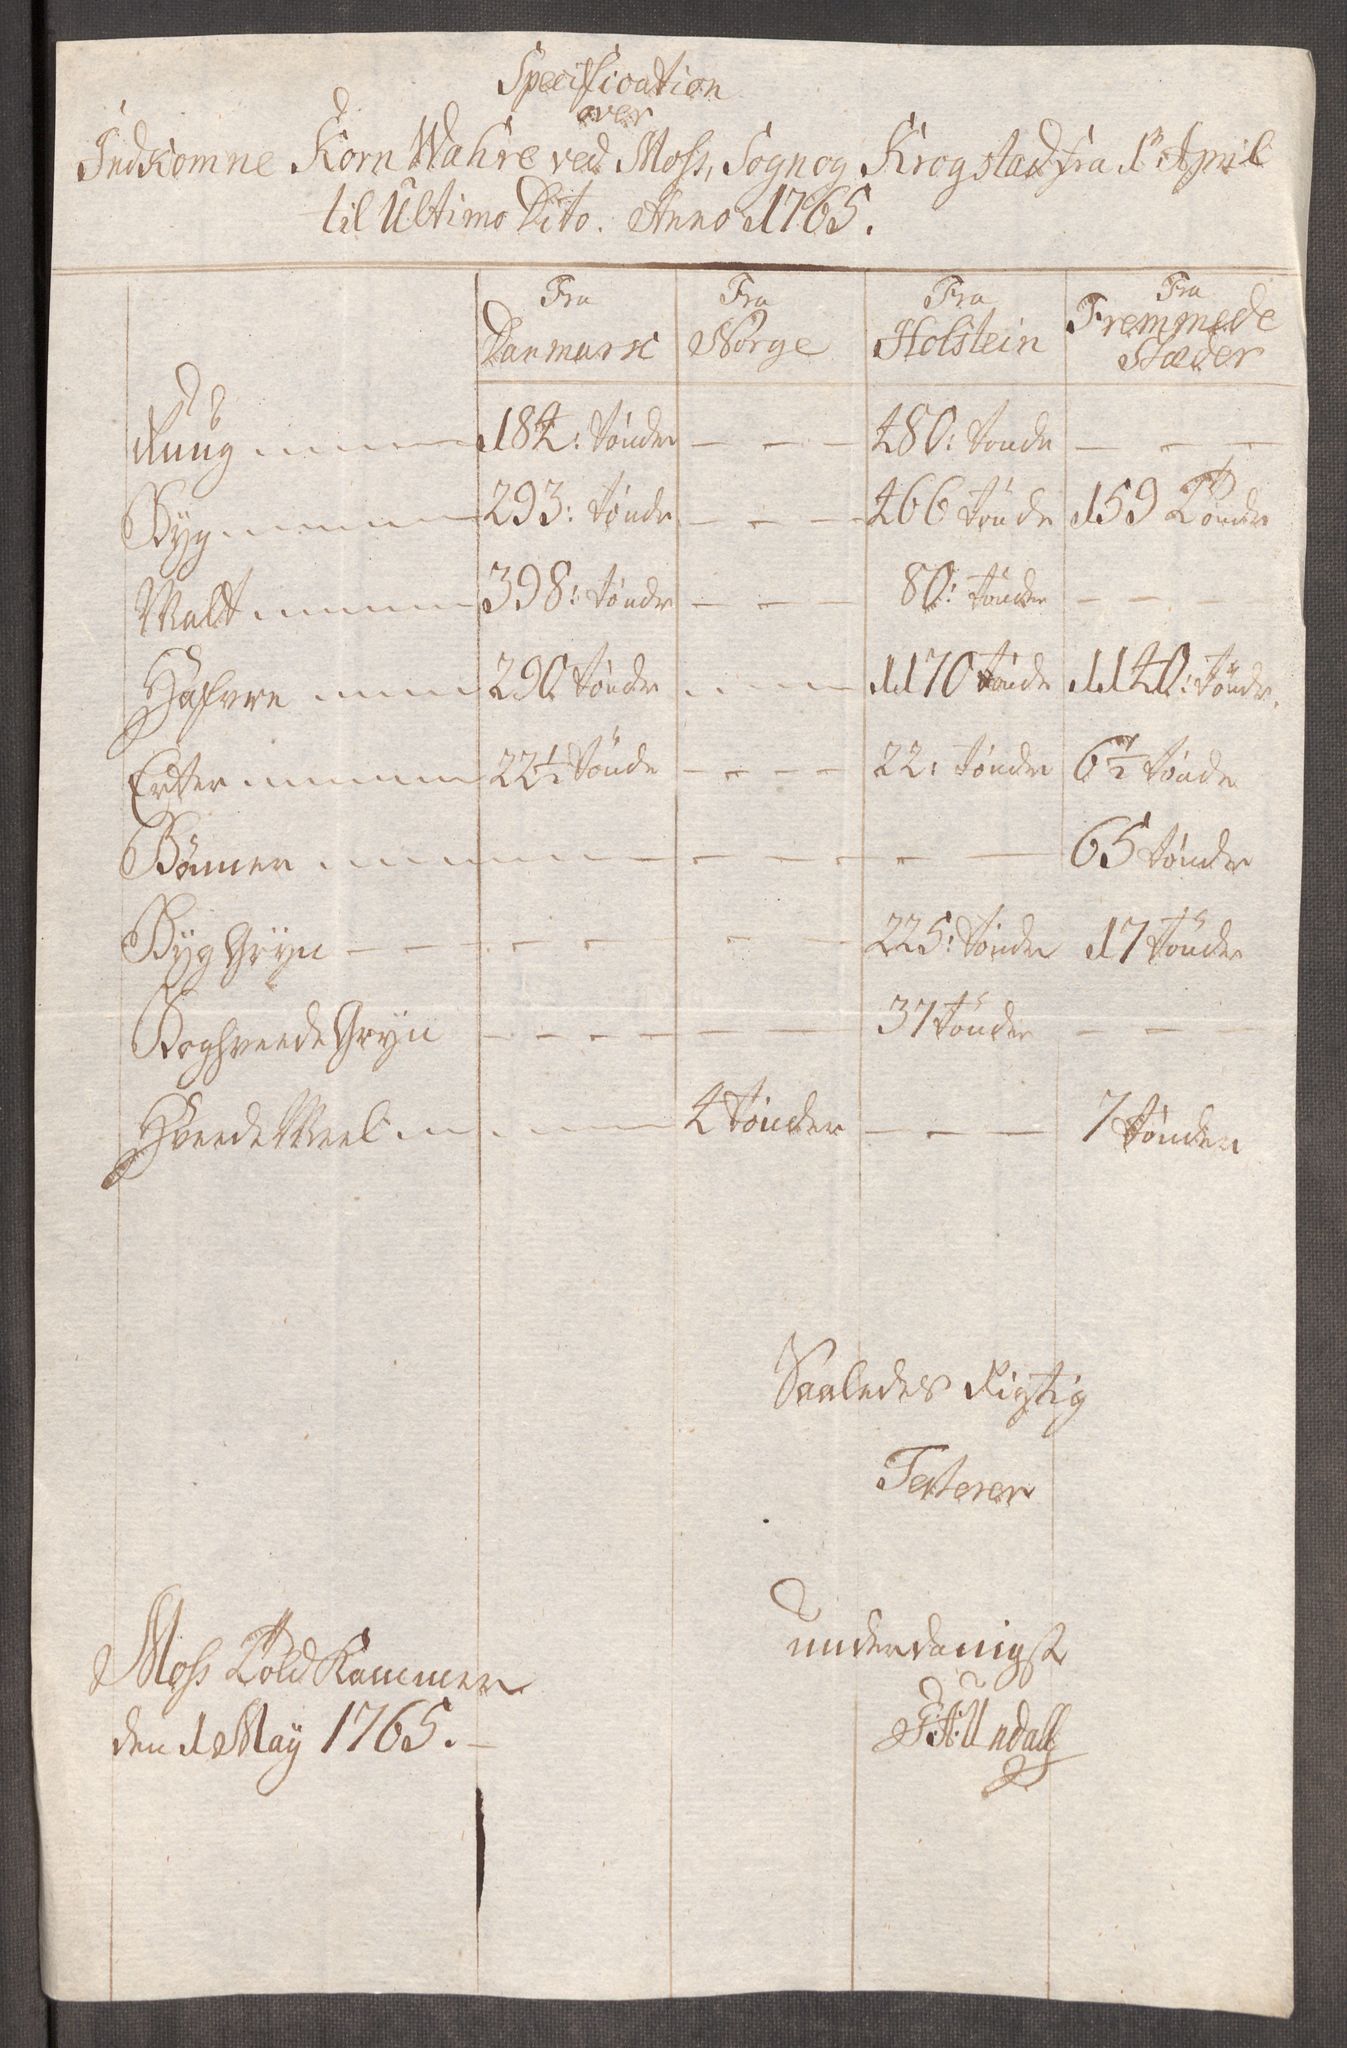 Specification
over
Indkomne Korn Wahre ved Moss, Sogn og Krogstad fra 1n April
til Ultimo Dito. Anno 1765.
Fra Danmark Fra Norge Fra Holstein Fra Fremmede Stæder
Ruug 184: Tønder — 480: Tønde —
Byg 293: Tønde — 466 Tønde 159 Tønder
Malt 398: Tønder — 80: Tønder —
Hafvre 290 Tønder — 1170 Tønde 1140: Tønde.
Erter 22½ Tønde — 22: Tønder 6½ Tønde
Bønner — — — 65 Tønder
Byg Gryn — — 225: Tønder 17 Tønder
Boghveede Gryn — — 37 Tønder —
Hveede Meel — 4 Tønder — 7 Tønder
Saaledes Rigtig
Testerer
Moss Told Kammer
den 1 May 1765.
underdanigst